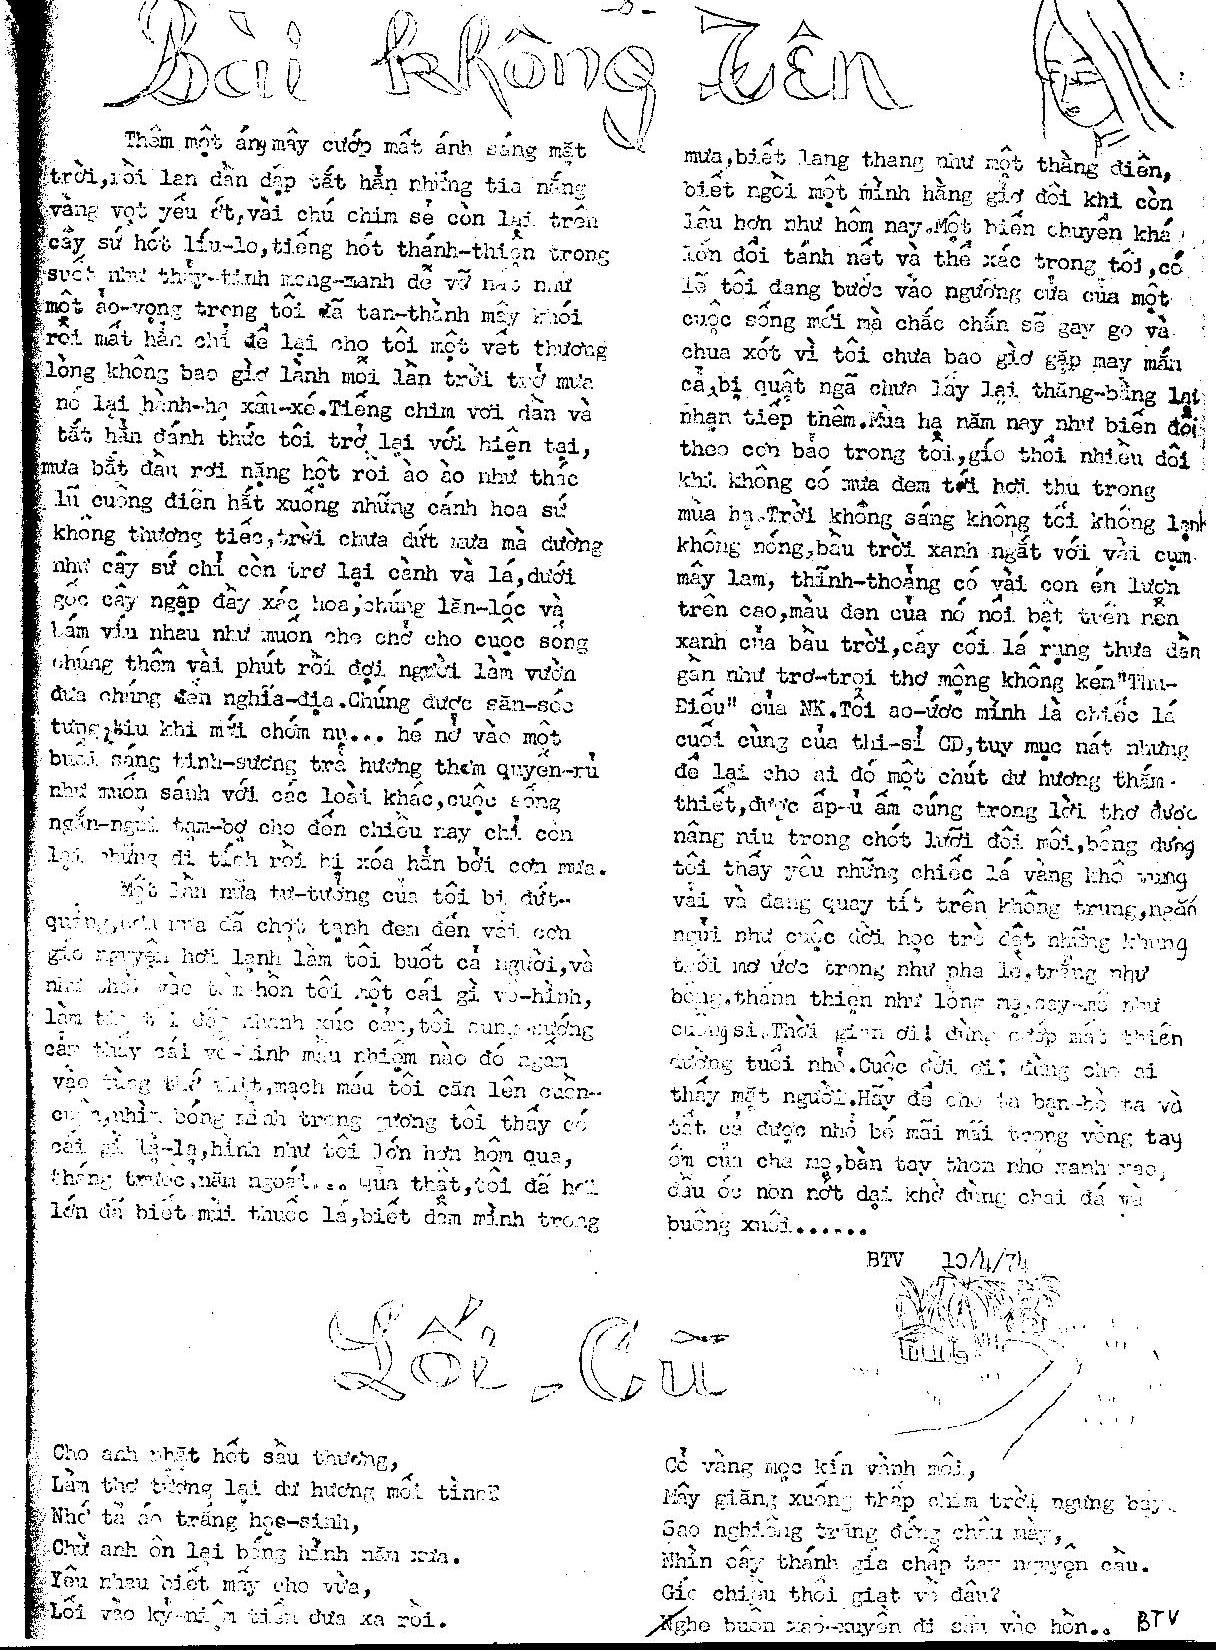 -8-
Bài không tên
Thêm một áng mây cướp mất ánh sáng mặt
trời,rồi lan dần dập tắt hẳn những tia nắng
vàng vọt yếu ớt,vài chú chim sẻ còn lại trên
cây sứ hót líu-lo,tiếng hót thánh-thiện trong
suốt như thủy-tinh mong-manh dễ vỡ nát như
một ảo-vọng trong tôi đã tan-thành mây khói
rồi mất hẳn chỉ để lại cho tôi một vết thương
lòng không bao giờ lành mỗi lần trời trở mưa
nó lại hành-hạ xâu-xé.Tiếng chim vơi dần và
tắt hẳn đánh thức tôi trở lại với hiện tại,
mưa bắt đầu rơi nặng hột rồi ào ào như thác
lũ cuồng điên hất xuống những cánh hoa sứ
không thương tiếc,trời chưa dứt mưa mà dường
như cây sứ chỉ còn trơ lại cành và lá,dưới
gốc cây ngập đầy xác hoa,chúng lăn-lóc và
bám víu nhau như muốn che chở cho cuộc sống
chúng thêm vài phút rồi đợi người làm vườn
đưa chúng đến nghĩa-địa.Chúng được săn-sóc
từng,kiu khi mới chớm nụ... hé nở vào một
buổi sáng tinh-sương trả hương thơm quyến-rủ
như muốn sánh với các loài khác,cuộc sống
ngắn-ngủi tạm-bợ cho đến chiều nay chỉ còn
lại những di tích rồi bị xóa hẳn bởi cơn mưa.
Một lần nữa tư-tưởng của tôi bị đứt-
quãng,cơn mưa đã chợt tạnh đem đến vài cơn
gió nguyện hơi lạnh làm tôi buốt cả người,và
như vào hồn tôi một cái gì vô-hình,
làm tôi xúc cảm,tôi sung-sướng
cảm thấy cái vô-hình mầu nhiệm nào đó ngấm
vào từng thớ thịt,mạch máu tôi căn lên cuồn-
cuộn,nhìn bóng mình trong gương tôi thấy có
cái gì là-lạ,hình như tôi lớn hơn hôm qua,
tháng trước,năm ngoái... Quả thật,tôi đã hơi
lớn đã biết mùi thuốc lá,biết dầm mình trong
mưa,biết lang thang như một thằng điên,
biết ngồi một mình hằng giờ đôi khi còn
lâu hơn như hôm nay.Một biến chuyển khá
lớn đổi tánh nết và thể xác trong tôi,có
lẽ tôi đang bước vào ngưỡng cửa của một
cuộc sống mới mà chắc chắn sẽ gay go và
chua xót vì tôi chưa bao giờ gặp may mắn
cả,bị quật ngã chưa lấy lại thăng-bằng lại
nhận tiếp thêm.Mùa hạ năm nay như biến đổi
theo cơn bảo trong tôi,gió thổi nhiều đôi
khi không có mưa đem tới hơi thu trong
mùa hạ.Trời không sáng không tối không lạnh
không nóng,bầu trời xanh ngắt với vài cụm
mây lam, thỉnh-thoảng có vài con én lượn
trên cao,màu đen của nó nổi bật trên nền
xanh của bầu trời,cây cối lá rụng thưa dần
gần như trơ-trọi thơ mộng không kém"Thu-
Điếu" của NK.Tôi ao-ước mình là chiếc lá
cuối cùng của thi-sỉ CD,tuy mục nát nhưng
để lại cho ai đó một chút dư hương thắm
thiết,được ấp-ủ ấm cúng trong lời thơ được
nâng niu trong chót lưỡi đôi môi,bỗng dưng
tôi thấy yêu những chiếc lá vàng khô vung
vải và đang quay tít trên không trung,ngắn
ngủi như cuộc đời học trò dệt những khung
trời mơ ước trong như pha lê,trắng như
bông,thánh thiện như lòng mẹ,say-mê như
cuồng si.Thời gian ơi! đừng cướp mất thiên
đường tuổi nhỏ.Cuộc đời ơi! đừng cho ai
thấy mặt người.Hãy để cho ta bạn-bè ta và
tất cả được nhỏ bé mãi mãi trong vòng tay
ôm của cha mẹ,bàn tay thon nhỏ xanh xao,
đầu óc non nớt dại khờ đừng chai đá và
buông xuôi......
BTV 10/4/74
Lối - Cũ
Cho anh nhặt hốt sầu thương,
Làm thơ tưởng lại dư hương mối tình
Nhớ tà áo trắng học-sinh,
Chừ anh ôn lại bóng hình năm xưa.
Yêu nhau biết mấy cho vừa,
Lối vào kỷ-niệm tiễn đưa xa rồi.
Cỏ vàng mọc kín vành môi,
Mây giăng xuống thấp chim trời ngưng bay.
Sao nghiêng trăng đứng chầu này,
Nhìn cây thánh giá chấp tay nguyện cầu.
Gió chiều thổi giạt về đâu?
Nghe buồn xao-xuyến đi sâu vào hồn.. BTV